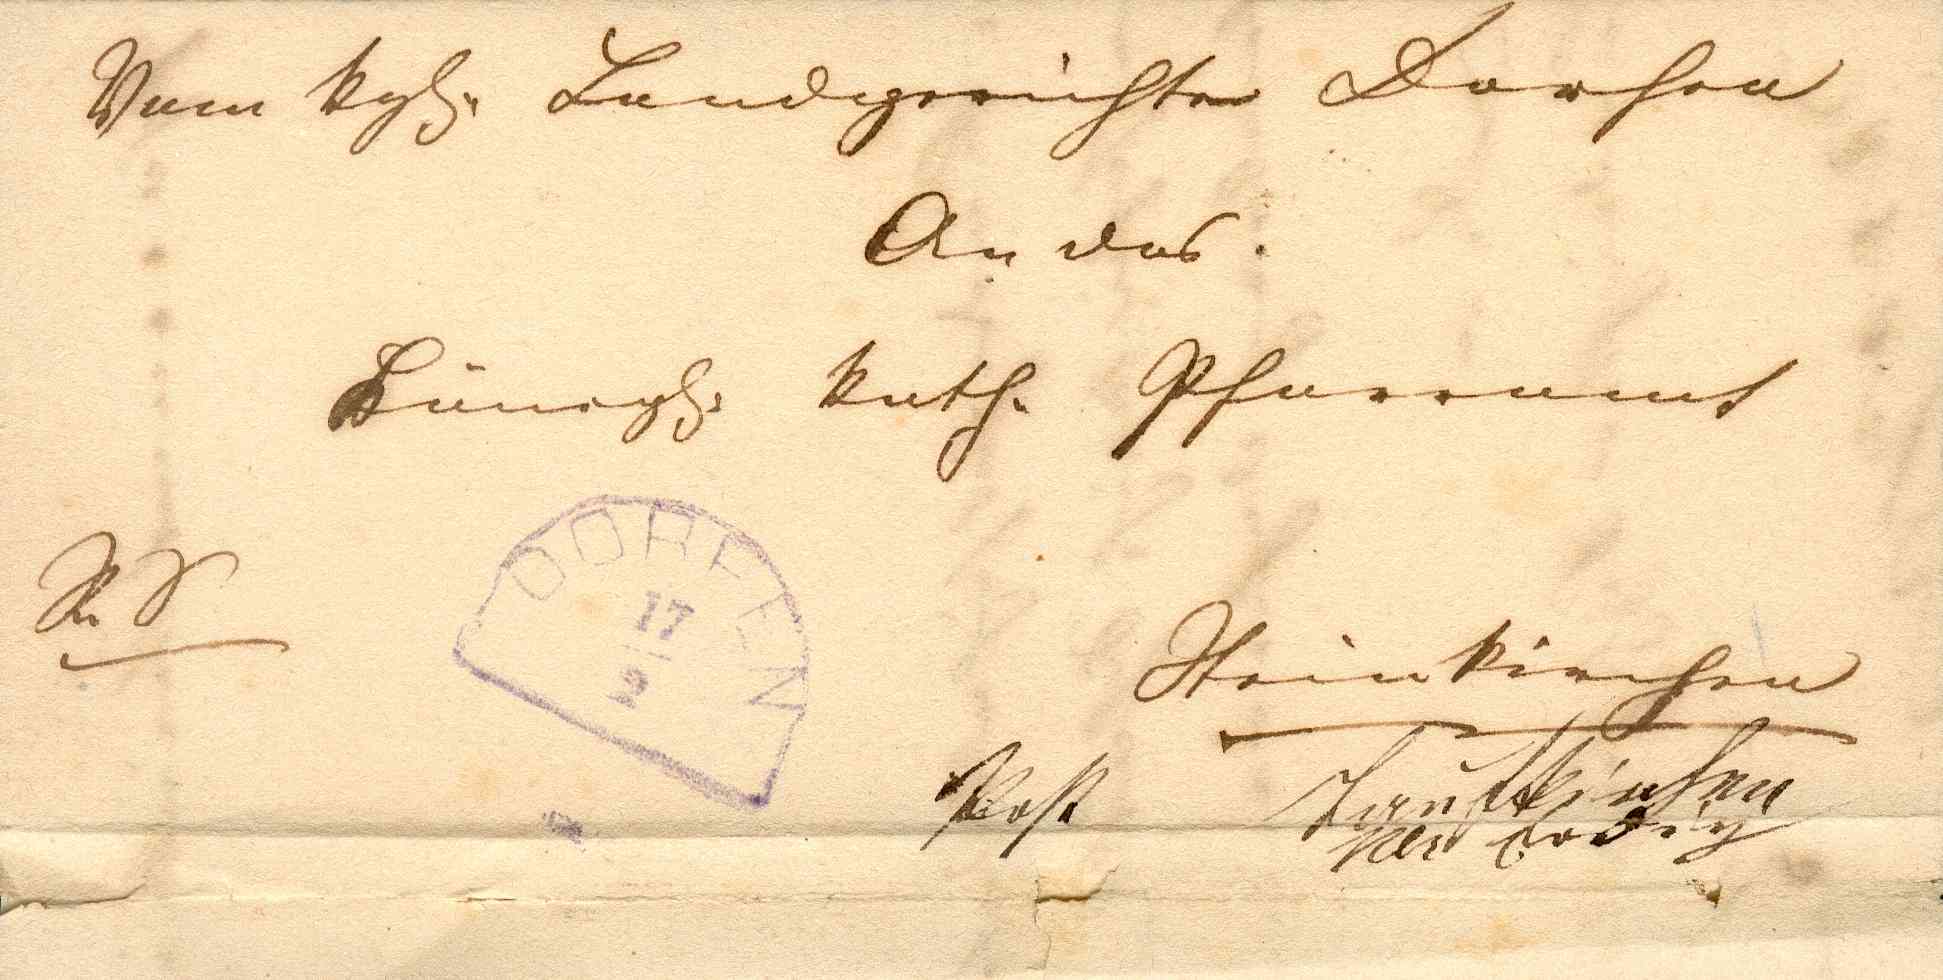 Vom kgl. Landgerichte Dorfen
An das
Königl. kath. Pfarramt
R. S
DORFEN
17
2
Steinkirchen
Post Taufkirchen